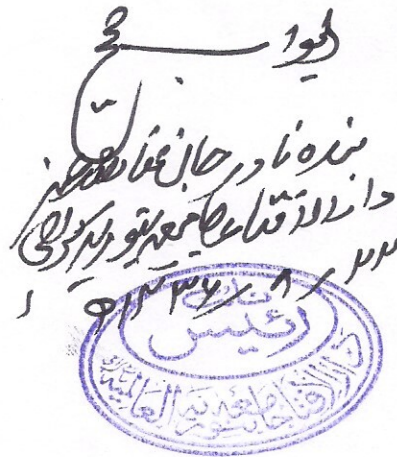 الجواب صحیح
بندہ نادر جان عفا اللہ عنہ
دارالافتاء جامعہ بنوریہ کراچی
۲۲ / ۸ / ۱۴۳۶ھ
نائب
رئیس
دارالافتاء جامعہ بنوریہ العالمیہ